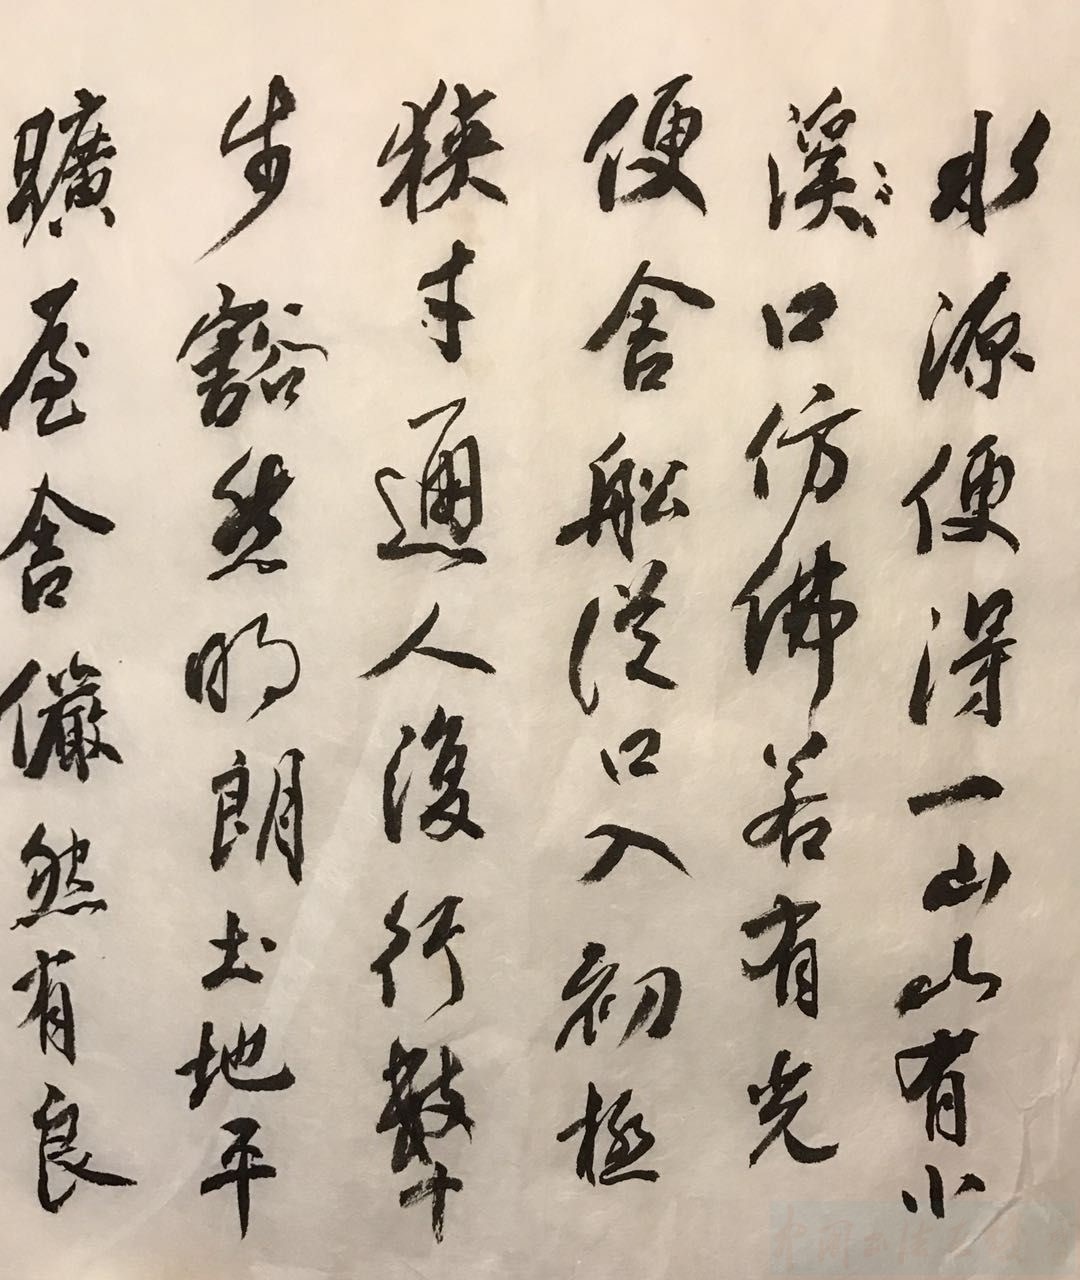 水源便得一山山有小
溪口仿佛若有光
便舍船從口入初極
狹才通人復行數十
步豁然明朗土地平
曠屋舍儼然有良